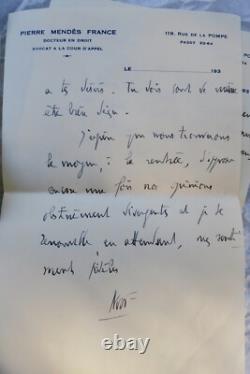 PIERRE MENDÈS FRANCE
DOCTEUR EN DROIT
AVOCAT A LA COUR D'APPEL
119, RUE DE LA POMPE
PASSY
LE 193
a tes désirs. Tu dois tout de même
être bien
J'espère que nous trouverons
le moyen, à la rentrée,
encore une fois nos opinions
obstinément divergentes et je te
renouvelle en attendant, mes senti-
ments fidèles
© www.ebay.fr